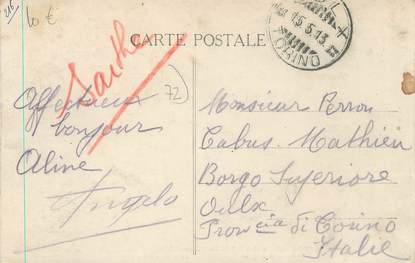 216
10 €
CARTE POSTALE
15.5.13
TORINO
Sarthe
72
Affectueux
bonjour
Aline
Angelo
Monsieur Perron
Cabus. Mathieu
Borgo Superiore
Oulx
Provcia di Torino
Italie